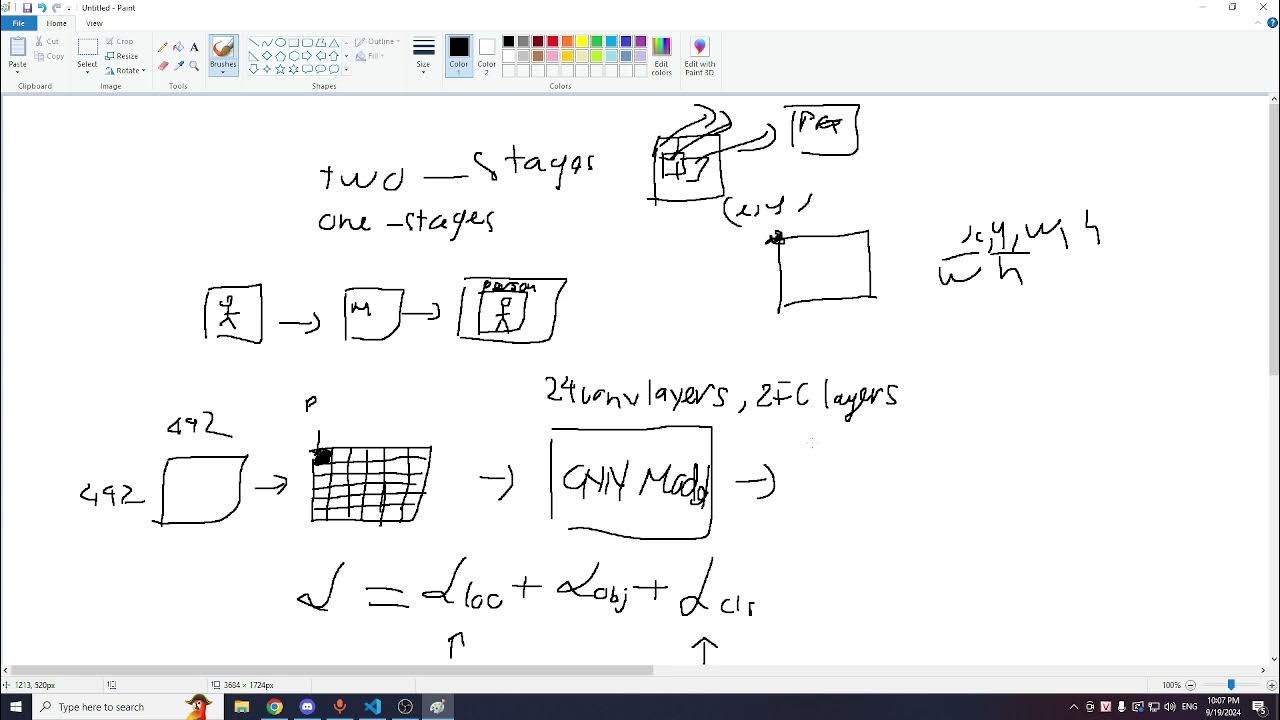 Untitled - Paint
File Home View
Paste Cut Copy
Clipboard
Select Crop Resize Rotate
Image
Tools
Brushes
Shapes
Outline
Fill
Size
Color 1
Color 2
Edit colors
Colors
Edit with Paint 3D
two - stages
one - stages
x, y, w, h
w h
M
person
24 conv layers, 2 FC layers
P
492
492
CNN Model
L = Lloc + Lobj + Lcls
1213, 520px
3684 × 1724px
100%
Type here to search
10:07 PM
9/19/2024